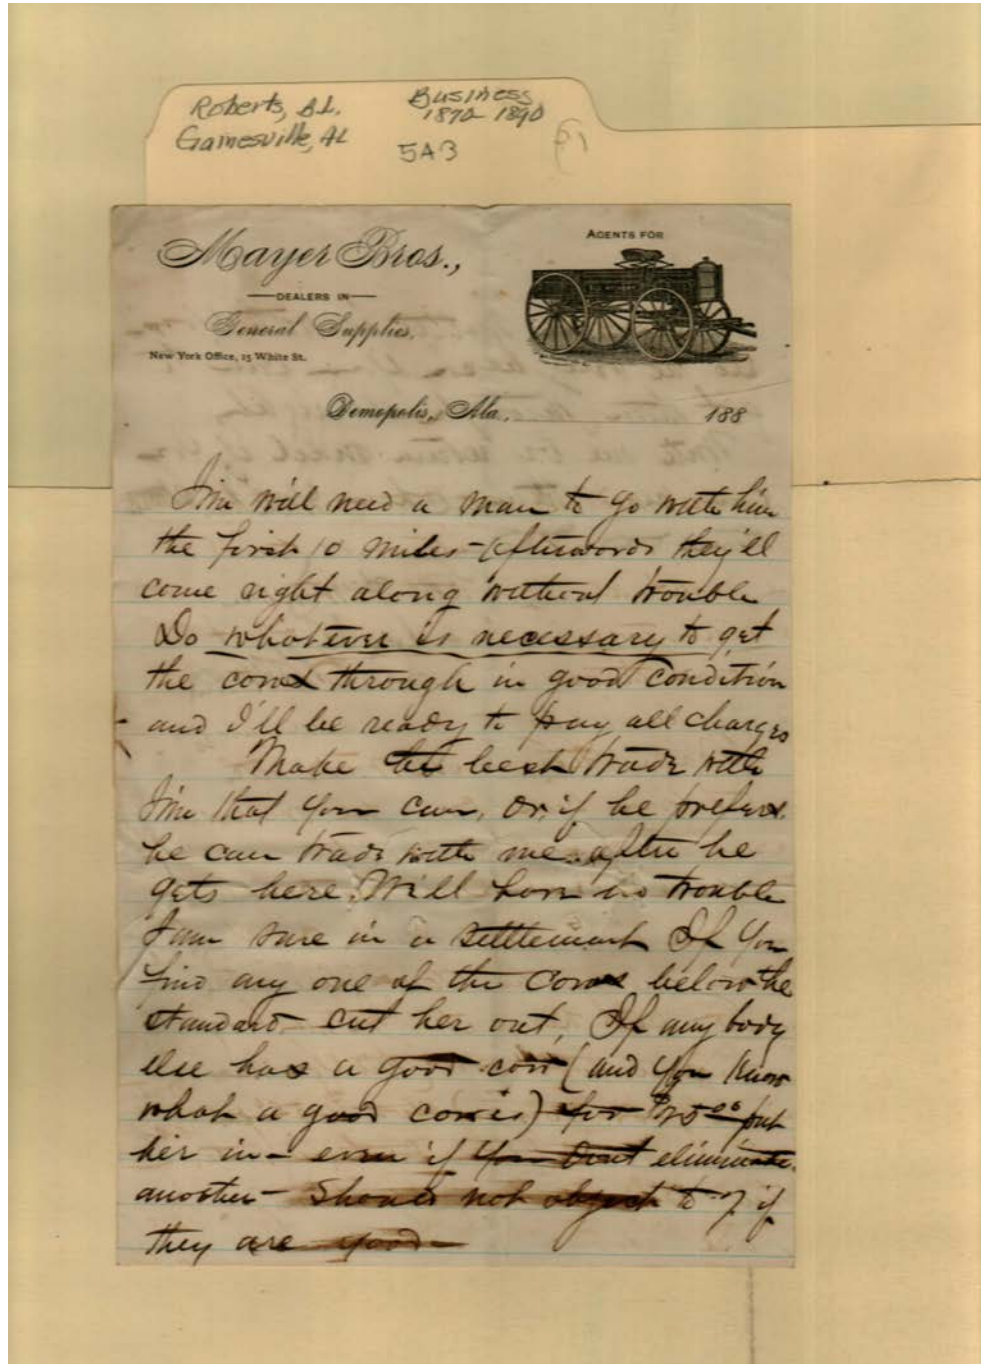 Roberts, B.L.
Gainesville, AL
Business
1870-1890
5A3
Mayer Bros.,
DEALERS IN
General Supplies,
New York Office, 15 White St.
AGENTS FOR
Demopolis, Ala., 188
Jim will need a man to go with him
the first 10 miles - afterwards they'll
come right along without trouble
Do whatever is necessary to get
the cows through in good condition
and I'll be ready to pay all charges
Make the best trade with
Jim that you can, or, if he prefers
he can trade with me after he
gets here. Will have no trouble
I am sure in a settlement If you
find any one of the cows below the
standard - cut her out, If any body
else has a good cow (and you know
what a good cow is) for put
her in - even if you dont eliminate
another - Should not object to 7 if
they are good -